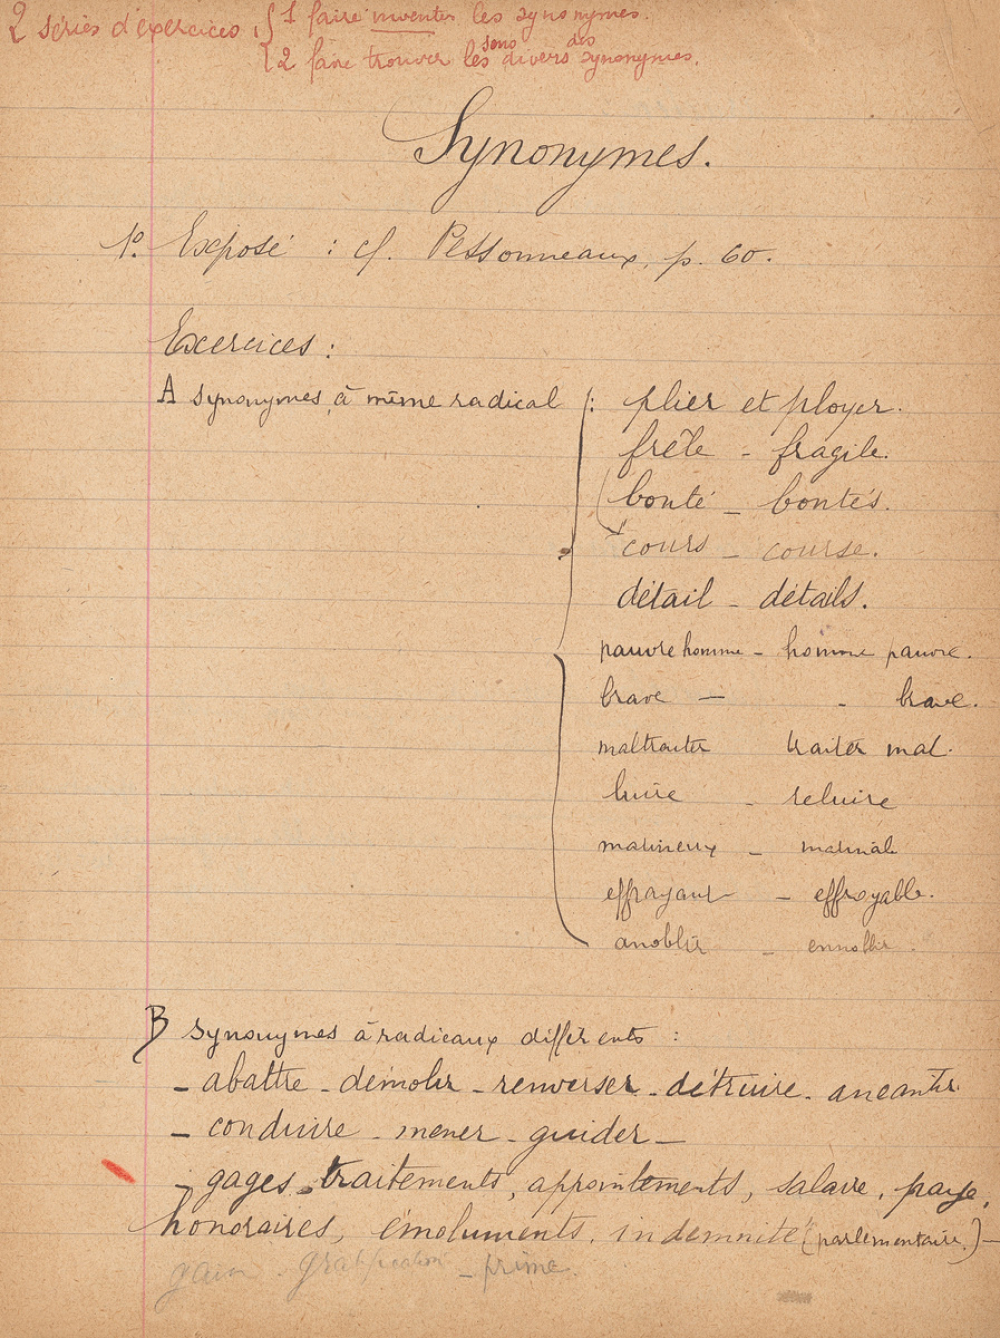 2 séries d'exercices : { 1 faire inventer les synonymes.
2 faire trouver les sens divers des synonymes.
Synonymes.
1º. Exposé : cf. Pessonneaux, p. 60.
Exercices :
A synonymes à même radical : plier et ployer.
frêle - fragile.
bonté - bontés.
cours - course.
détail - détails.
pauvre homme - homme pauvre.
brave — - brave.
maltraiter traiter mal.
luire - reluire
matineux - matinal
effrayant - effroyable.
anoblir - ennoblir.
B synonymes à radicaux différents :
- abattre - démolir - renverser - détruire - anéantir.
- conduire - mener - guider -
- gages - traitements, appointements, salaire, paye,
honoraires, émoluments, indemnité (parlementaire.) -
gain - gratification - prime.